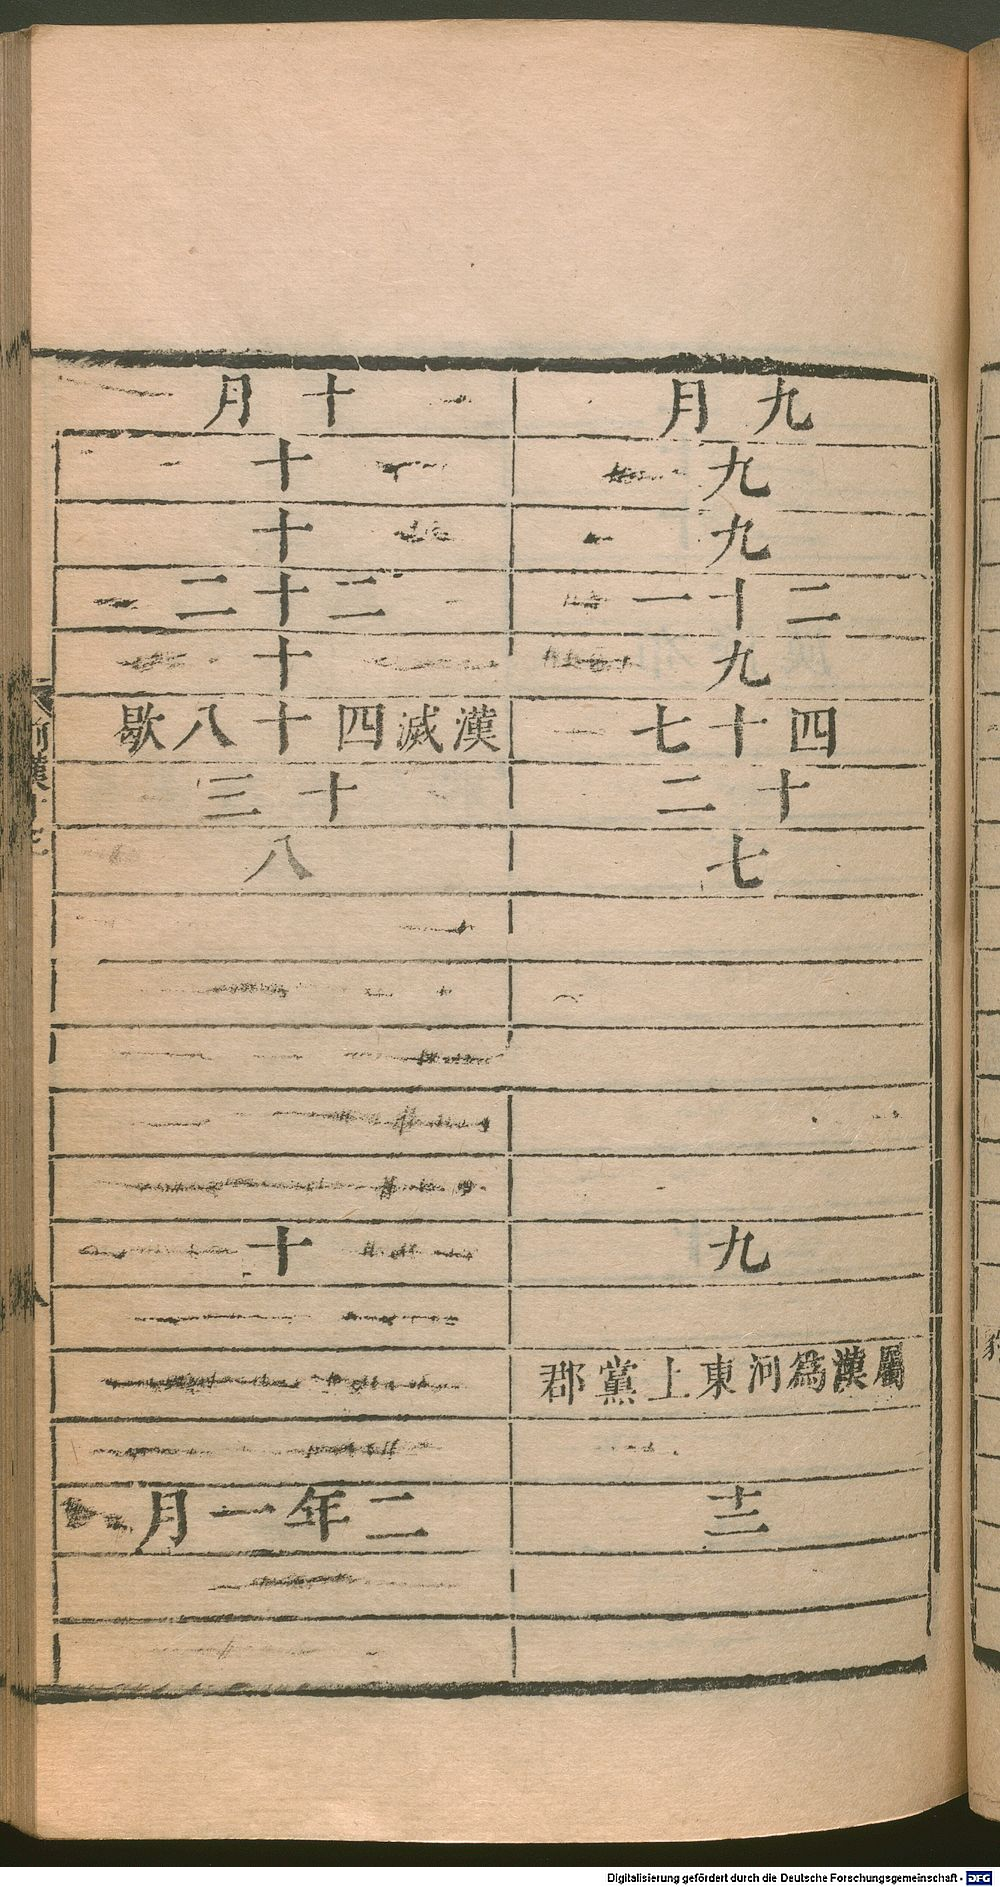 九月
九
九
二十一
九
四十七
十二
七
九
屬漢爲河東上黨郡
十三
十月
十
十
二十二
十
漢滅四十八歇
十三
八
十
二年一月
Digitalisierung gefördert durch die Deutsche Forschungsgemeinschaft - DFG